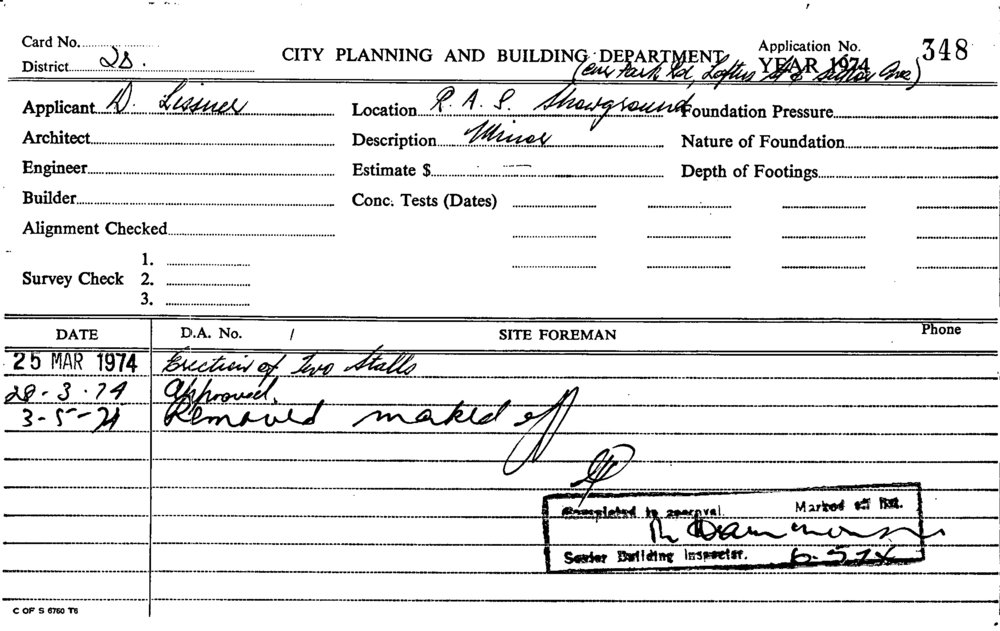 Card No.
District 2D.
CITY PLANNING AND BUILDING DEPARTMENT
Application No. 348
YEAR 1974
(cnr Park Rd, Loftus St & Ave)
Applicant D. Lissner
Location R. A. S. Showground
Foundation Pressure
Architect
Description Minor
Nature of Foundation
Engineer
Estimate $ —
Depth of Footings
Builder
Conc. Tests (Dates)
Alignment Checked
Survey Check 1.
2.
3.
DATE D.A. No. / SITE FOREMAN Phone
25 MAR 1974 Erection of Two Stalls
28-3.74 Approved.
3-5-74 Removed marked off
Completed to approval. Marked off list.
Senior Building Inspector. 6-5-74
C OF S 6760 T6